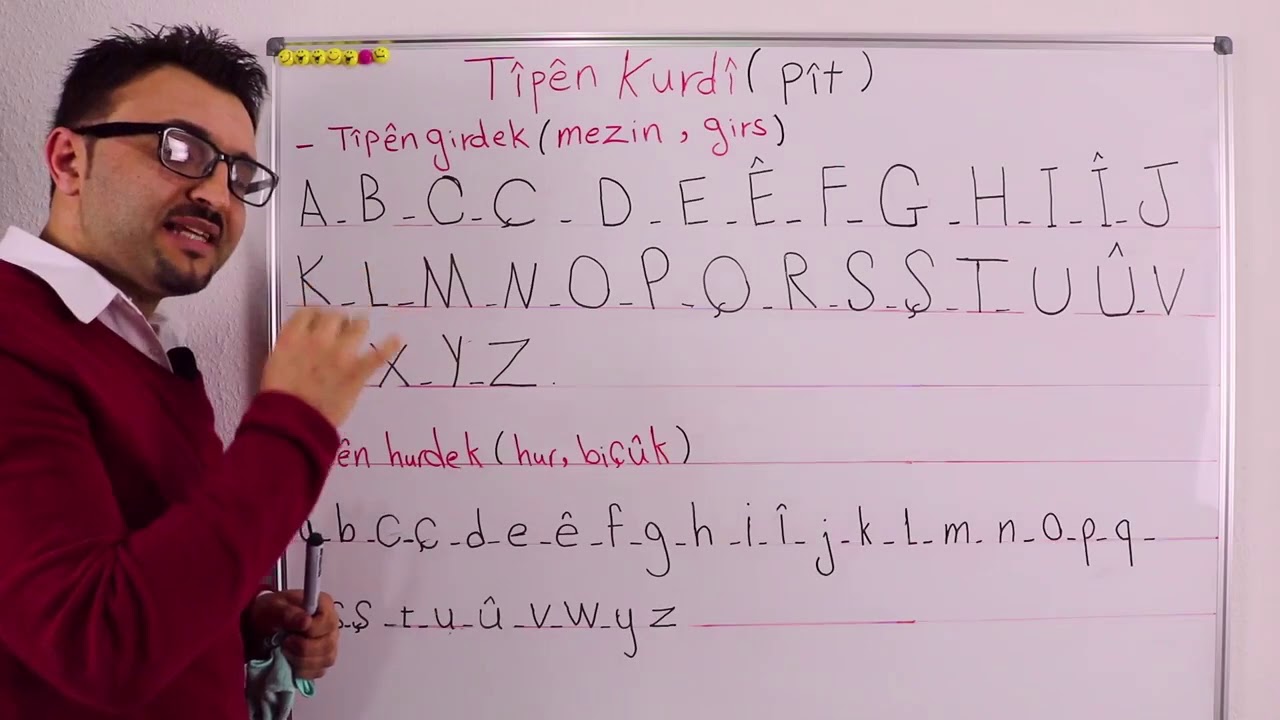 Tîpên Kurdî ( pît )
- Tîpên girdek ( mezin , girs )
A - B - C - Ç - D - E - Ê - F - G - H - I - Î - J
K - L - M - N - O - P - Q - R - S - Ş - T - U Û - V
X - Y - Z .
hurdek ( hur, biçûk )
b - c - ç - d - e - ê - f - g - h - i - î - j - k - l - m - n - o - p - q -
s - ş - t - u - û - v - w - y z